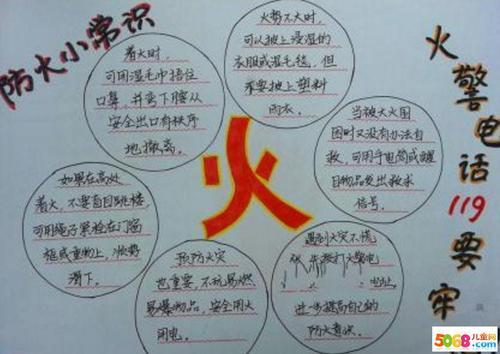 防火小常识
着火时，
可用湿毛巾捂住
口鼻，并弯下腰从
安全出口有秩序
地撤离。
火势不大时，
可以披上浸湿的
衣服或湿毛毯，但
不要披上塑料
雨衣。
当被大火围
困时又没有办法自
救，可用手电筒或醒
目物品发出求救
信号。
火警电话119要牢
火
如果在高处
着火，不要盲目跳楼，
可用绳子紧栓在门窗
框或重物上，
滑下。
预防火灾
也重要，不玩易燃
易爆物品，安全用火
用电。
遇到火灾不慌
拨打火警电
进一步提高自己的
防火意识。
5068儿童网